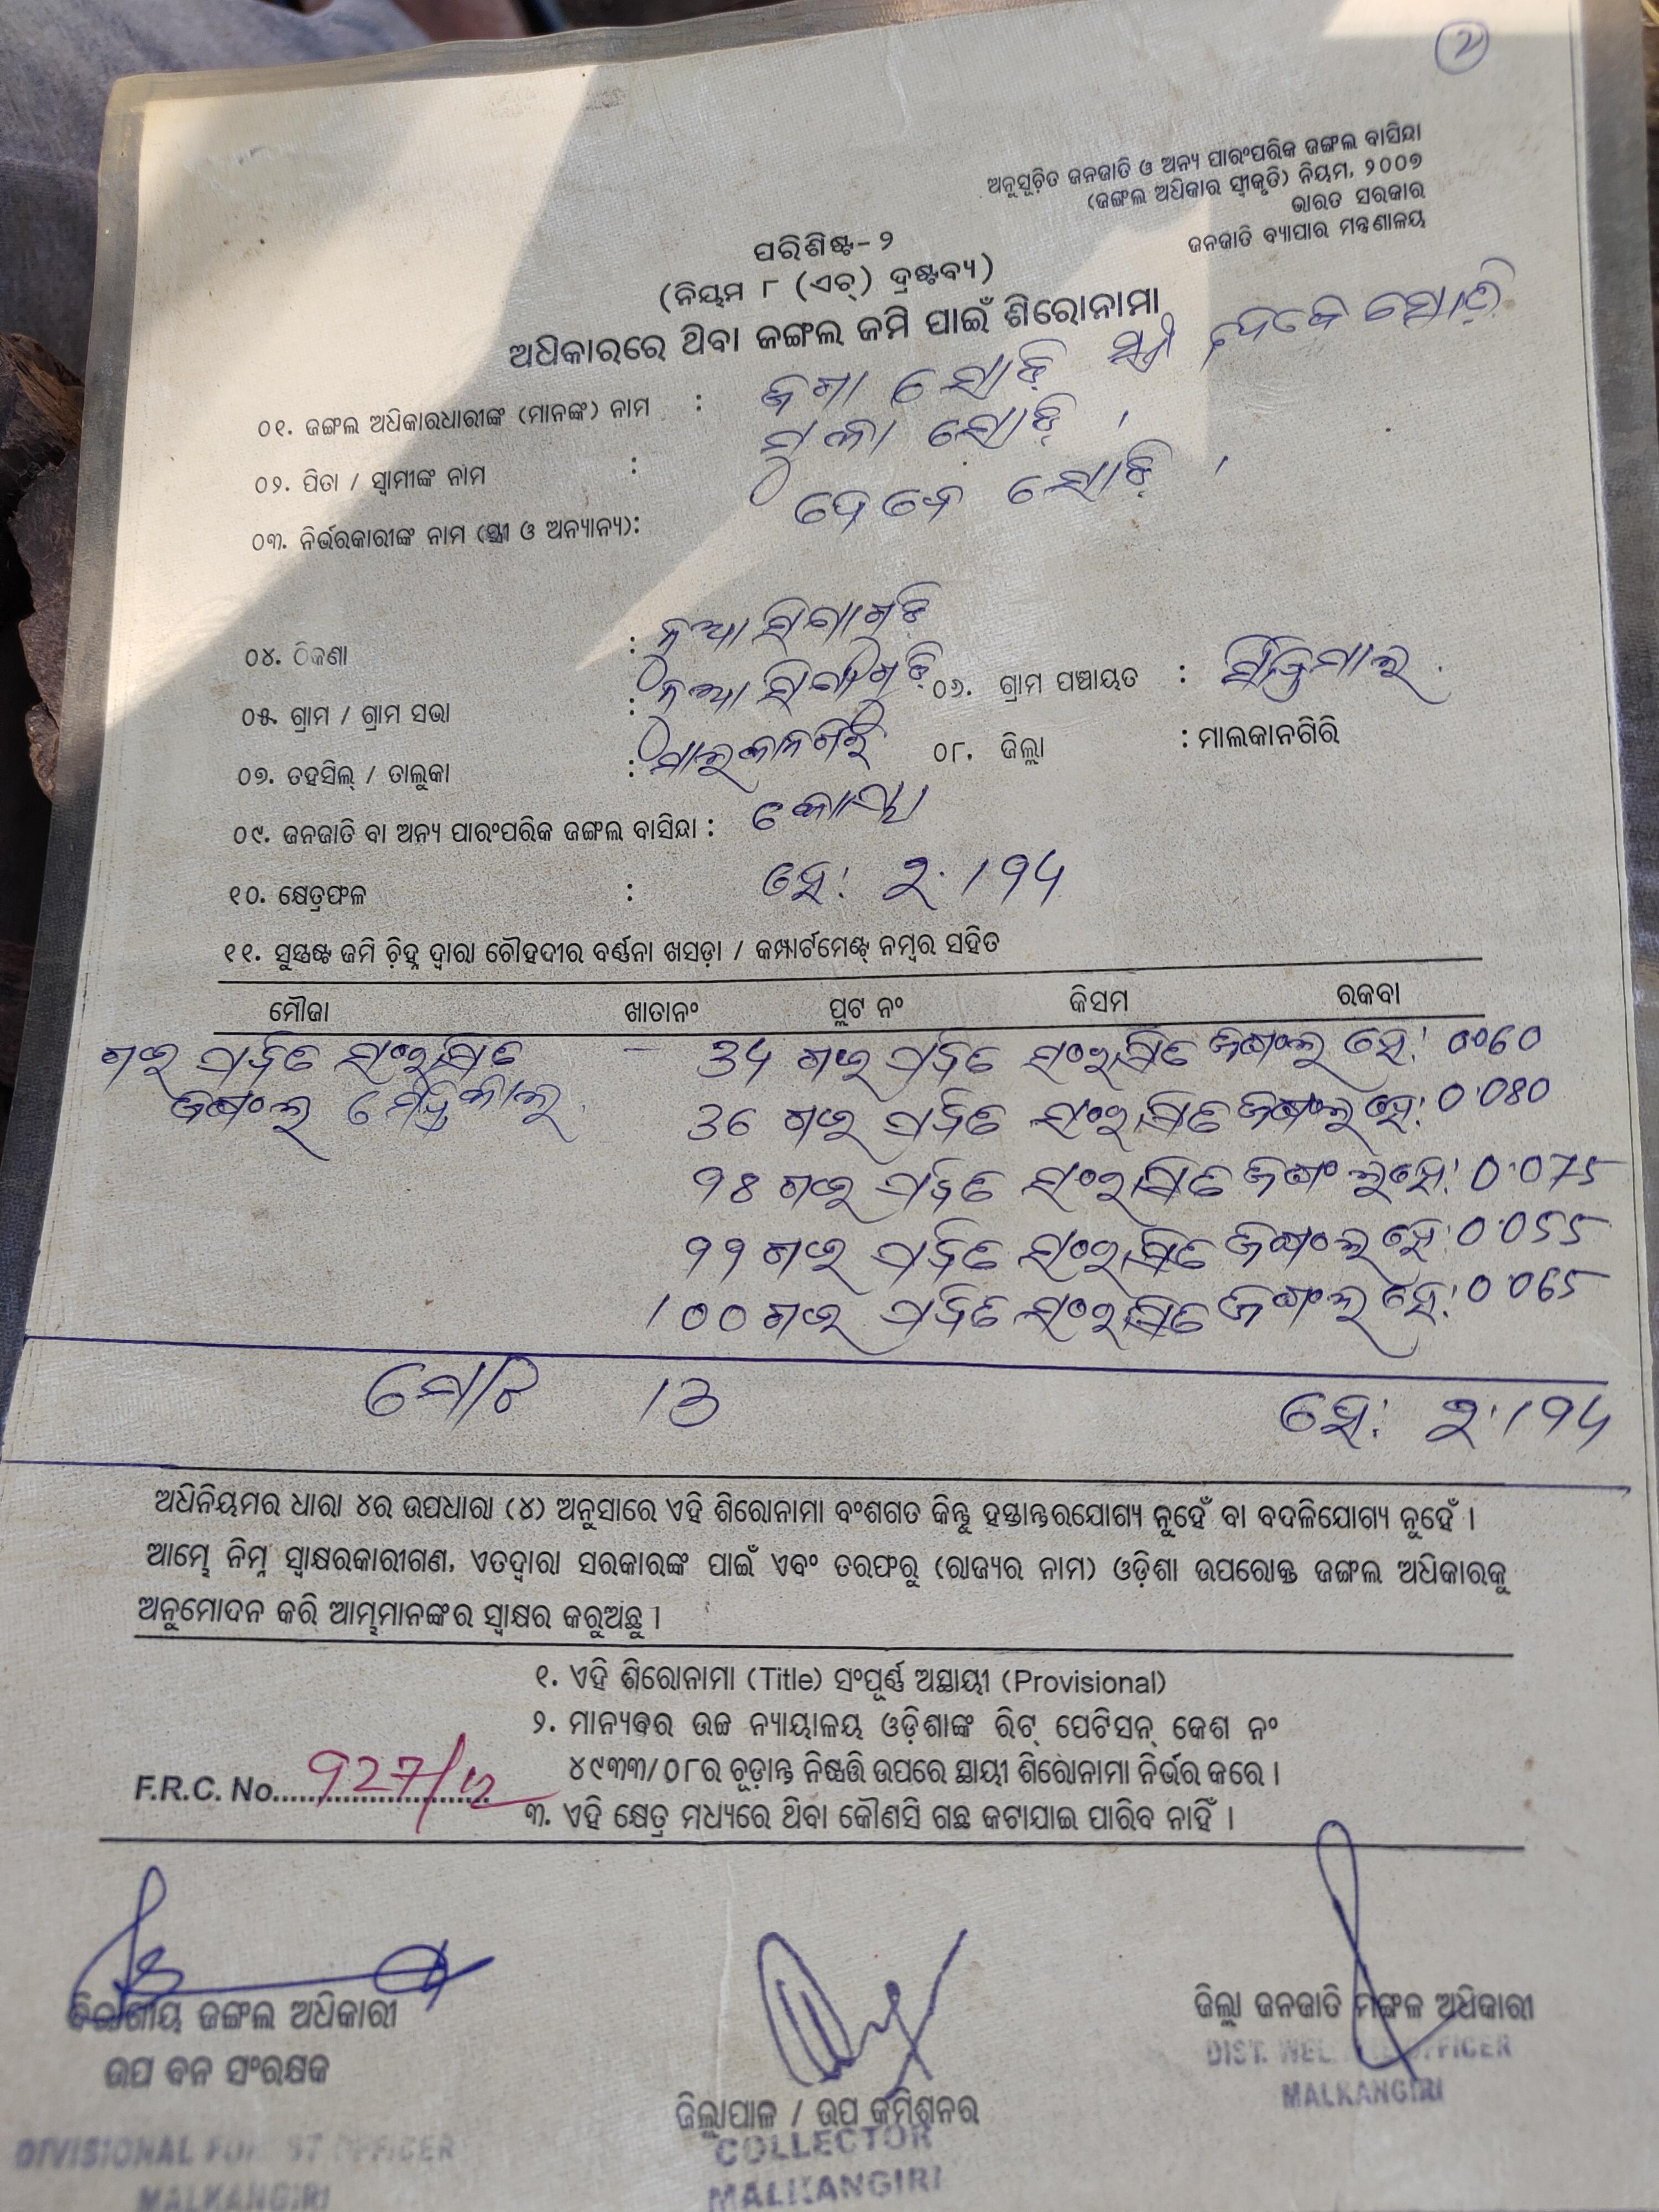 ୨
ଅନୁସୂଚିତ ଜନଜାତି ଓ ଅନ୍ୟ ପାରଂପରିକ ଜଙ୍ଗଲ ବାସିନ୍ଦା
(ଜଙ୍ଗଲ ଅଧିକାର ସ୍ୱୀକୃତି) ନିୟମ, ୨୦୦୭
ଭାରତ ସରକାର
ଜନଜାତି ବ୍ୟାପାର ମନ୍ତ୍ରଣାଳୟ
ପରିଶିଷ୍ଟ-୨
(ନିୟମ ୮ (ଏଚ୍) ଦ୍ରଷ୍ଟବ୍ୟ)
ଅଧିକାରରେ ଥିବା ଜଙ୍ଗଲ ଜମି ପାଇଁ ଶିରୋନାମା
୦୧. ଜଙ୍ଗଲ ଅଧିକାରଧାରୀଙ୍କ (ମାନଙ୍କ) ନାମ : ଜଗା ସୋଡ଼ି ସ୍ତ୍ରୀ ଦେବେ ସୋଡ଼ି
୦୨. ପିତା / ସ୍ୱାମୀଙ୍କ ନାମ : ମୁକା ସୋଡ଼ି ।
୦୩. ନିର୍ଭରକାରୀଙ୍କ ନାମ (ସ୍ତ୍ରୀ ଓ ଅନ୍ୟାନ୍ୟ): ଦେବେ ସୋଡ଼ି ।
୦୪. ଠିକଣା :
୦୫. ଗ୍ରାମ / ଗ୍ରାମ ସଭା : ୦୬. ଗ୍ରାମ ପଞ୍ଚାୟତ :
୦୭. ତହସିଲ୍ / ତାଲୁକା : ମାଲକାନଗିରି ୦୮. ଜିଲ୍ଲା : ମାଲକାନଗିରି
୦୯. ଜନଜାତି ବା ଅନ୍ୟ ପାରଂପରିକ ଜଙ୍ଗଲ ବାସିନ୍ଦା : କୋୟା
୧୦. କ୍ଷେତ୍ରଫଳ : ହେ: ୨.୧94
୧୧. ସୁସ୍ପଷ୍ଟ ଜମି ଚିହ୍ନ ଦ୍ୱାରା ଚୌହଦୀର ବର୍ଣ୍ଣନା ଖସଡ଼ା / କମ୍ପାର୍ଟମେଣ୍ଟ୍ ନମ୍ବର ସହିତ
ମୌଜା ଖାତାନଂ ପ୍ଲଟ ନଂ କିସମ ରକବା
ସଂରକ୍ଷିତ - ସଂରକ୍ଷିତ ଜଙ୍ଗଲ ହେ: 0.060
ଜଙ୍ଗଲ 36 ସଂରକ୍ଷିତ ଜଙ୍ଗଲ ହେ: 0.080
98 ସଂରକ୍ଷିତ ଜଙ୍ଗଲ ହେ: 0.075
99 ସଂରକ୍ଷିତ ଜଙ୍ଗଲ ହେ: 0.055
100 ସଂରକ୍ଷିତ ଜଙ୍ଗଲ ହେ: 0.065
ମୋଟ 13 ହେ: ୨.୧94
ଅଧିନିୟମର ଧାରା ୪ର ଉପଧାରା (୪) ଅନୁସାରେ ଏହି ଶିରୋନାମା ବଂଶଗତ କିନ୍ତୁ ହସ୍ତାନ୍ତରଯୋଗ୍ୟ ନୁହେଁ ବା ବଦଳିଯୋଗ୍ୟ ନୁହେଁ ।
ଆମ୍ଭେ ନିମ୍ନ ସ୍ୱାକ୍ଷରକାରୀଗଣ, ଏତଦ୍ୱାରା ସରକାରଙ୍କ ପାଇଁ ଏବଂ ତରଫରୁ (ରାଜ୍ୟର ନାମ) ଓଡ଼ିଶା ଉପରୋକ୍ତ ଜଙ୍ଗଲ ଅଧିକାରକୁ
ଅନୁମୋଦନ କରି ଆମ୍ଭମାନଙ୍କର ସ୍ୱାକ୍ଷର କରୁଅଛୁ ।
୧. ଏହି ଶିରୋନାମା (Title) ସଂପୂର୍ଣ୍ଣ ଅସ୍ଥାୟୀ (Provisional)
୨. ମାନ୍ୟବର ଉଚ୍ଚ ନ୍ୟାୟାଳୟ ଓଡ଼ିଶାଙ୍କ ରିଟ୍ ପେଟିସନ୍ କେଶ ନଂ
୪୯୩୩/୦୮ର ଚୂଡ଼ାନ୍ତ ନିଷ୍ପତ୍ତି ଉପରେ ସ୍ଥାୟୀ ଶିରୋନାମା ନିର୍ଭର କରେ ।
F.R.C. No. 927/12
୩. ଏହି କ୍ଷେତ୍ର ମଧ୍ୟରେ ଥିବା କୌଣସି ଗଛ କଟାଯାଇ ପାରିବ ନାହିଁ ।
ବିଭାଗୀୟ ଜଙ୍ଗଲ ଅଧିକାରୀ
ଉପ ବନ ସଂରକ୍ଷକ
DIVISIONAL FOREST OFFICER
MALKANGIRI
ଜିଲ୍ଲାପାଳ / ଉପ କମିଶନର
COLLECTOR
MALKANGIRI
ଜିଲ୍ଲା ଜନଜାତି ମଙ୍ଗଳ ଅଧିକାରୀ
DIST. WELFARE OFFICER
MALKANGIRI